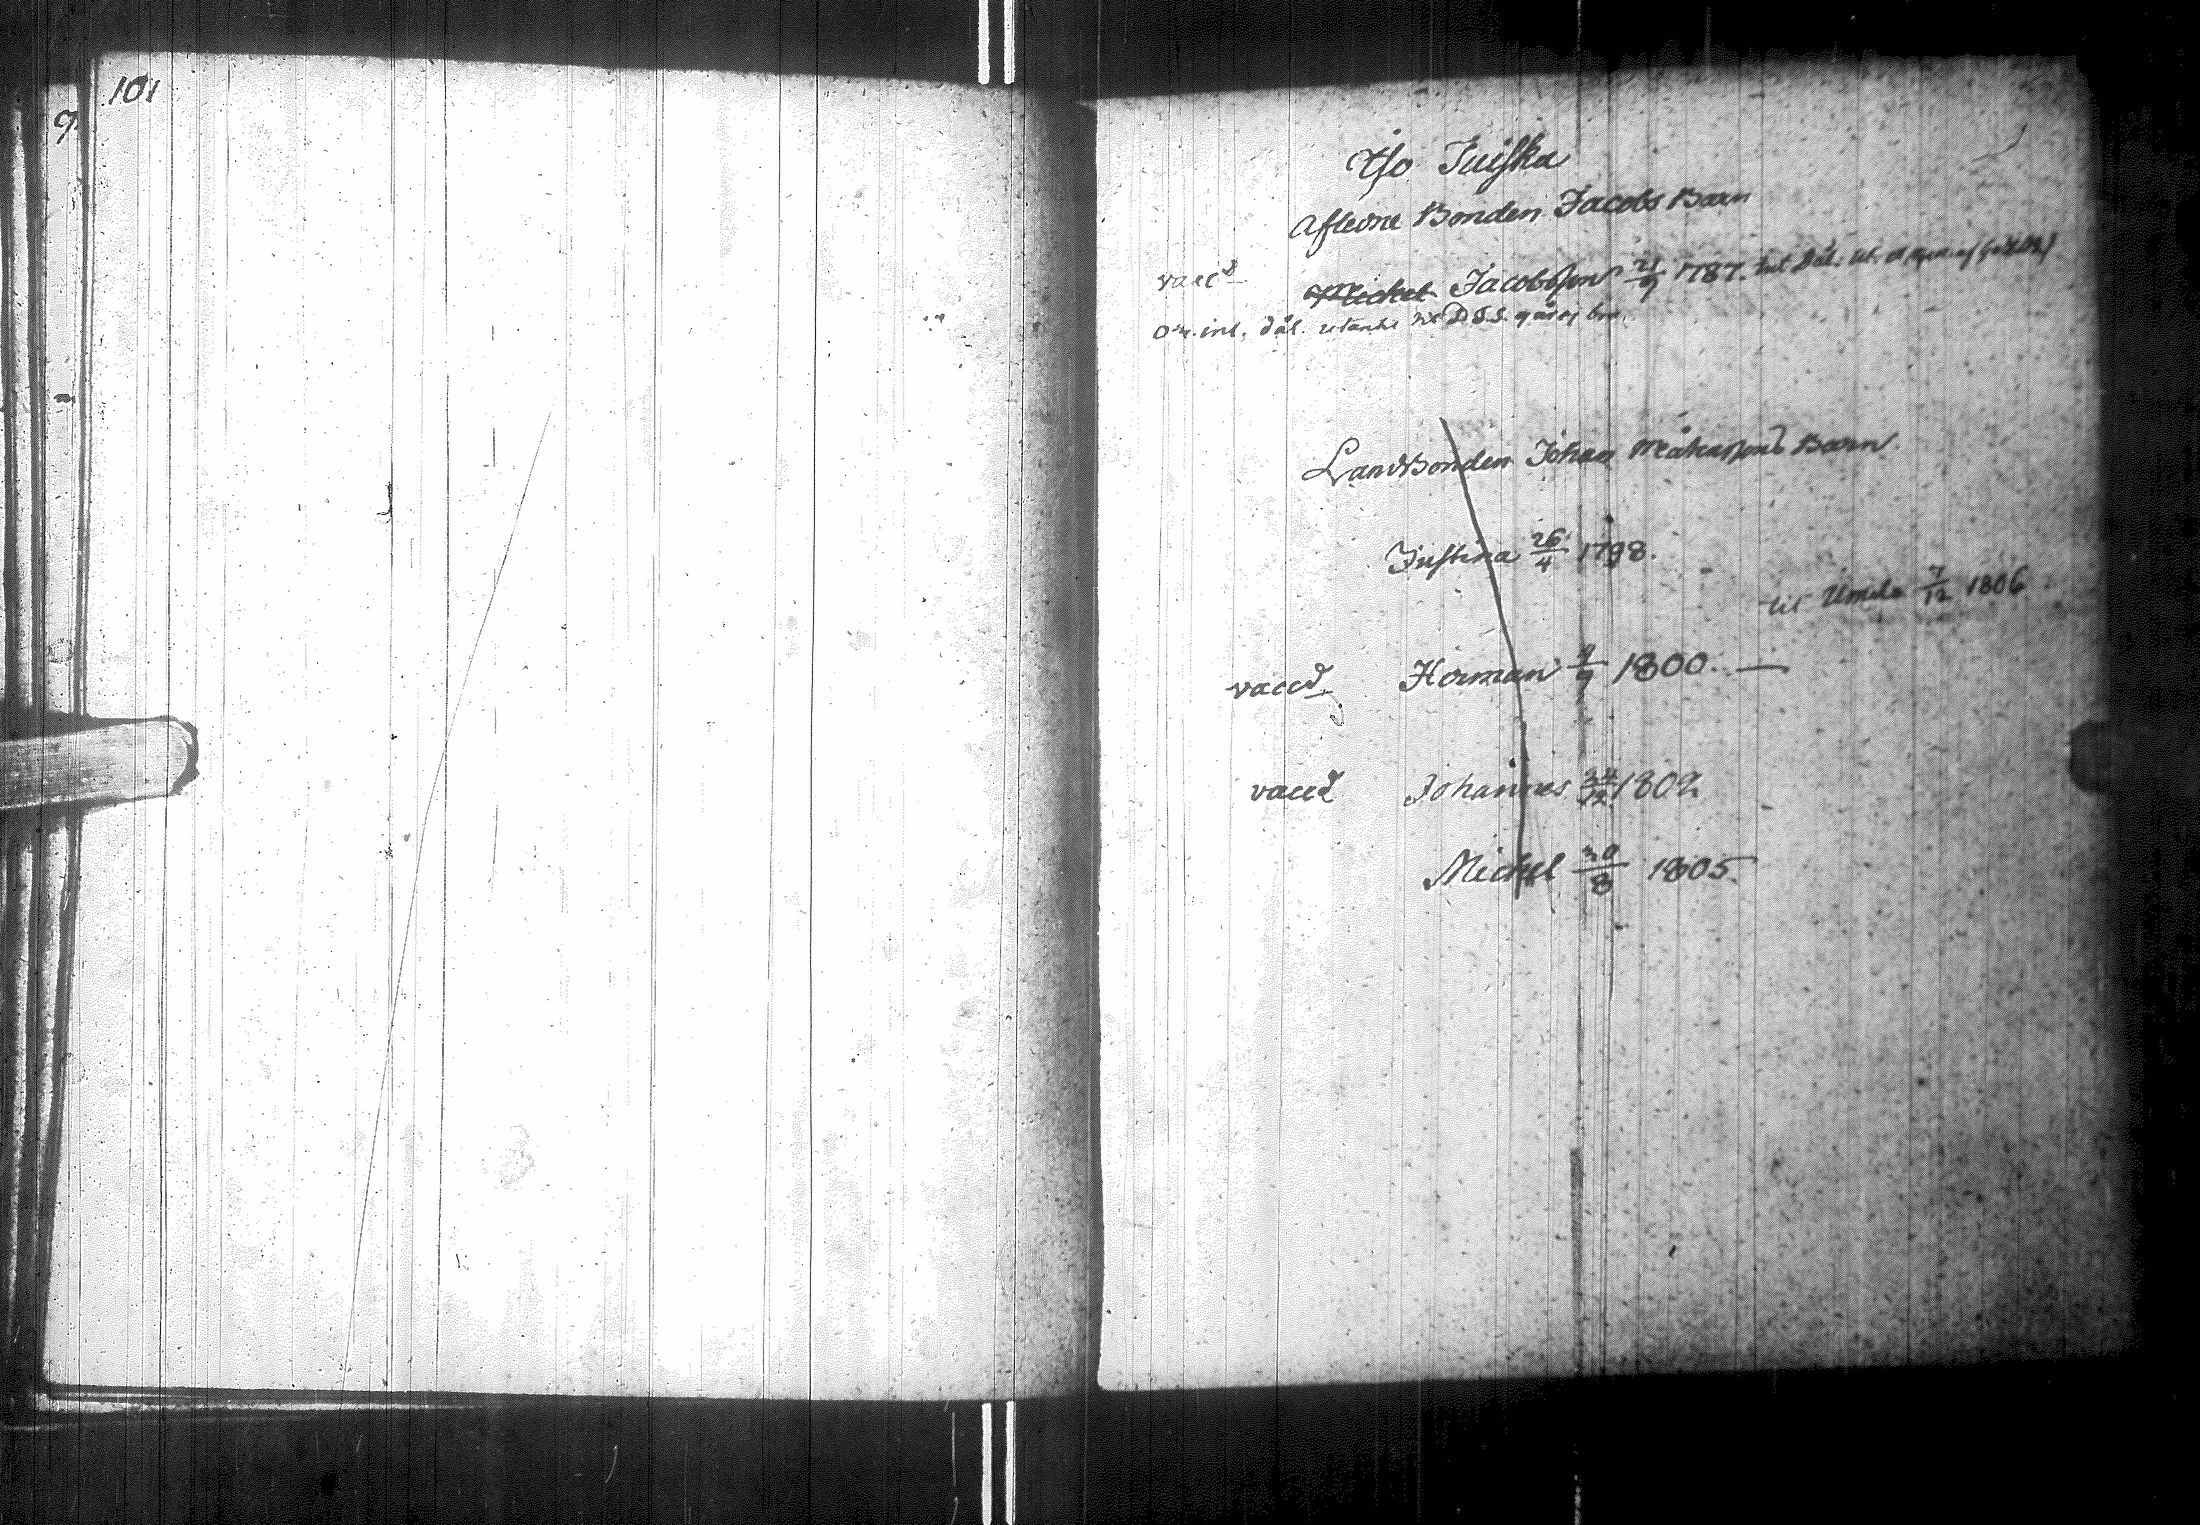 101
9
Yso Tuiska
Afledne Bonden Jacobs Barn
vacc^d Michel Jacobsson 21/9 1787.
Landbonden Johan Mårtenssons Barn.
Justina 26/4 1798.
til Umola 7/12 1806
vaccd Herman 4/9 1800. —
vaccd Johannes 24/12 1802
Michel 30/8 1805.